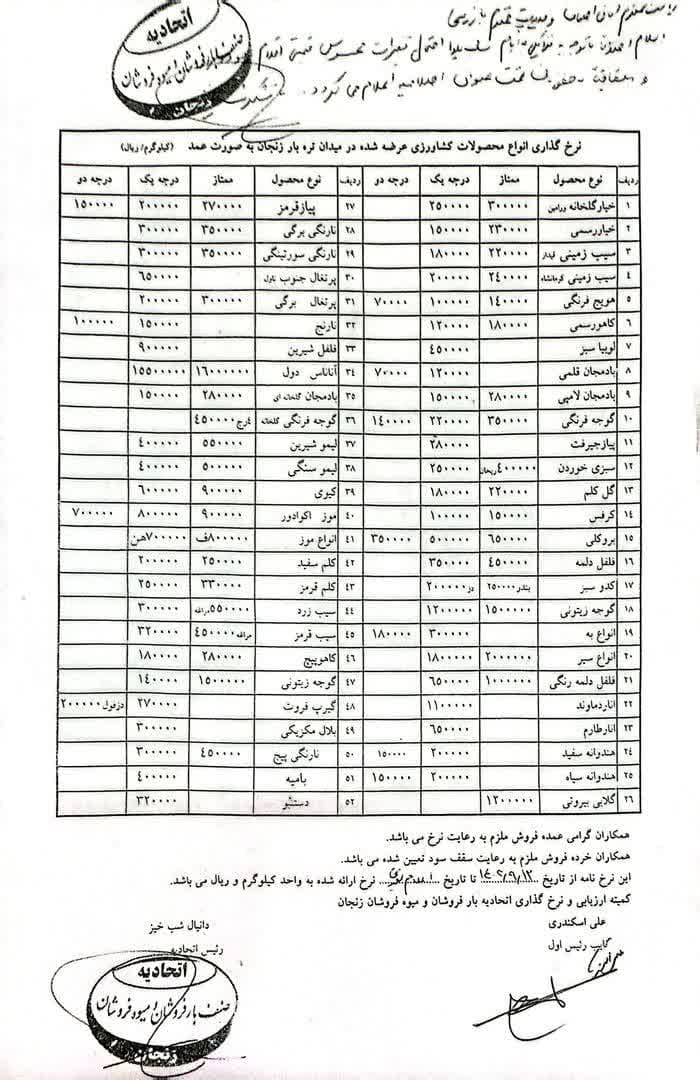 اتحادیه
صنف بارفروشان و میوه فروشان
زنجان
نرخ گذاری انواع محصولات کشاورزی عرضه شده در میدان تره بار زنجان به صورت عمد (کیلوگرم/ ریال)
ردیف نوع محصول ممتاز درجه یک درجه دو ردیف نوع محصول ممتاز درجه یک درجه دو
۱ خیارگلخانه ورامین ۳۰۰۰۰۰ ۲۵۰۰۰۰ ۲۷ پیازقرمز ۲۷۰۰۰۰ ۲۰۰۰۰۰ ۱۵۰۰۰۰
۲ خیاررسمی ۲۳۰۰۰۰ ۱۵۰۰۰۰ ۲۸ نارنگی برگی ۳۵۰۰۰۰ ۳۰۰۰۰۰
۳ سیب زمینی ۲۲۰۰۰۰ ۱۸۰۰۰۰ ۲۹ نارنگی سورتینگی ۳۵۰۰۰۰ ۳۰۰۰۰۰
۴ سیب زمینی کرمانشاه ۲۴۰۰۰۰ ۲۰۰۰۰۰ ۳۰ پرتغال جنوب ناول ۶۵۰۰۰۰
۵ هویج فرنگی ۱۴۰۰۰۰ ۱۰۰۰۰۰ ۷۰۰۰۰ ۳۱ پرتغال برگی ۳۰۰۰۰۰ ۲۰۰۰۰۰
۶ کاهورسمی ۱۸۰۰۰۰ ۱۲۰۰۰۰ ۳۲ نارنج ۱۵۰۰۰۰ ۱۰۰۰۰۰
۷ لوبیا سبز ۴۵۰۰۰۰ ۳۳ فلفل شیرین ۹۰۰۰۰۰
۸ بادمجان قلمی ۱۲۰۰۰۰ ۷۰۰۰۰ ۳۴ آناناس دول ۱۶۰۰۰۰۰ ۱۵۵۰۰۰۰۰
۹ بادمجان لامپی ۲۸۰۰۰۰ ۱۵۰۰۰۰ ۳۵ بادمجان گلخانه ای ۲۸۰۰۰۰ ۱۵۰۰۰۰
۱۰ گوجه فرنگی ۳۵۰۰۰۰ ۲۲۰۰۰۰ ۱۴۰۰۰۰ ۳۶ گوجه فرنگی گلخانه ۴۵۰۰۰۰
۱۱ پیازجیرفت ۲۸۰۰۰۰ ۳۷ لیمو شیرین ۵۵۰۰۰۰ ۴۰۰۰۰۰
۱۲ سبزی خوردن ۴۰۰۰۰۰ریحان ۲۵۰۰۰۰ ۳۸ لیمو سنگی ۵۰۰۰۰۰ ۴۰۰۰۰۰
۱۳ گل کلم ۲۲۰۰۰۰ ۱۸۰۰۰۰ ۳۹ کیوی ۹۰۰۰۰۰ ۶۰۰۰۰۰
۱۴ کرفس ۱۵۰۰۰۰ ۱۰۰۰۰۰ ۴۰ موز اکوادور ۹۰۰۰۰۰ ۸۰۰۰۰۰ ۷۰۰۰۰۰
۱۵ بروکلی ۶۵۰۰۰۰ ۵۰۰۰۰۰ ۳۵۰۰۰۰ ۴۱ انواع موز ۸۰۰۰۰۰ف ۷۰۰۰۰۰هن
۱۶ فلفل دلمه ۴۵۰۰۰۰ ۳۵۰۰۰۰ ۴۲ کلم سفید ۲۵۰۰۰۰ ۲۰۰۰۰۰
۱۷ کدو سبز بندر ۲۵۰۰۰۰ در ۲۰۰۰۰۰ ۴۳ کلم قرمز ۳۳۰۰۰۰ ۲۵۰۰۰۰
۱۸ گوجه زیتونی ۱۵۰۰۰۰۰ ۱۲۰۰۰۰۰ ۴۴ سیب زرد ۵۵۰۰۰۰مراغه ۳۰۰۰۰۰
۱۹ انواع به ۳۰۰۰۰۰ ۱۸۰۰۰۰ ۴۵ سیب قرمز مراغه ۴۵۰۰۰۰ ۳۲۰۰۰۰
۲۰ انواع سیر ۲۰۰۰۰۰۰ ۱۸۰۰۰۰۰ ۴۶ کاهوپیچ ۲۸۰۰۰۰ ۱۸۰۰۰۰
۲۱ فلفل دلمه رنگی ۱۰۰۰۰۰۰ ۶۵۰۰۰۰ ۴۷ گوجه زیتونی ۱۵۰۰۰۰۰ ۱۴۰۰۰۰۰
۲۲ اناردماوند ۱۱۰۰۰۰۰ ۴۸ گیرپ فروت ۲۷۰۰۰۰ دزفول ۲۰۰۰۰۰
۲۳ انارطارم ۶۵۰۰۰۰ ۴۹ بلال مکزیکی ۳۰۰۰۰۰
۲۴ هندوانه سفید ۲۰۰۰۰۰ ۱۵۰۰۰۰ ۵۰ نارنگی پیج ۴۵۰۰۰۰ ۳۰۰۰۰۰
۲۵ هندوانه سیاه ۲۰۰۰۰۰ ۱۵۰۰۰۰ ۵۱ بامیه ۴۰۰۰۰۰
۲۶ گلابی بیروتی ۱۲۰۰۰۰۰ ۵۲ دستنبو ۳۲۰۰۰۰
همکاران گرامی عمده فروش ملزم به رعایت نرخ می باشد.
همکاران خرده فروش ملزم به رعایت سقف سود تعیین شده می باشد.
این نرخ نامه از تاریخ ۱۴۰۲/۹/۱۲ تا تاریخ نرخ ارائه شده به واحد کیلوگرم و ریال می باشد.
کمیته ارزیابی و نرخ گذاری اتحادیه بار فروشان و میوه فروشان زنجان
علی اسکندری دانیال شب خیز
نایب رئیس اول رئیس اتحادیه
اتحادیه
صنف بارفروشان و میوه فروشان
زنجان